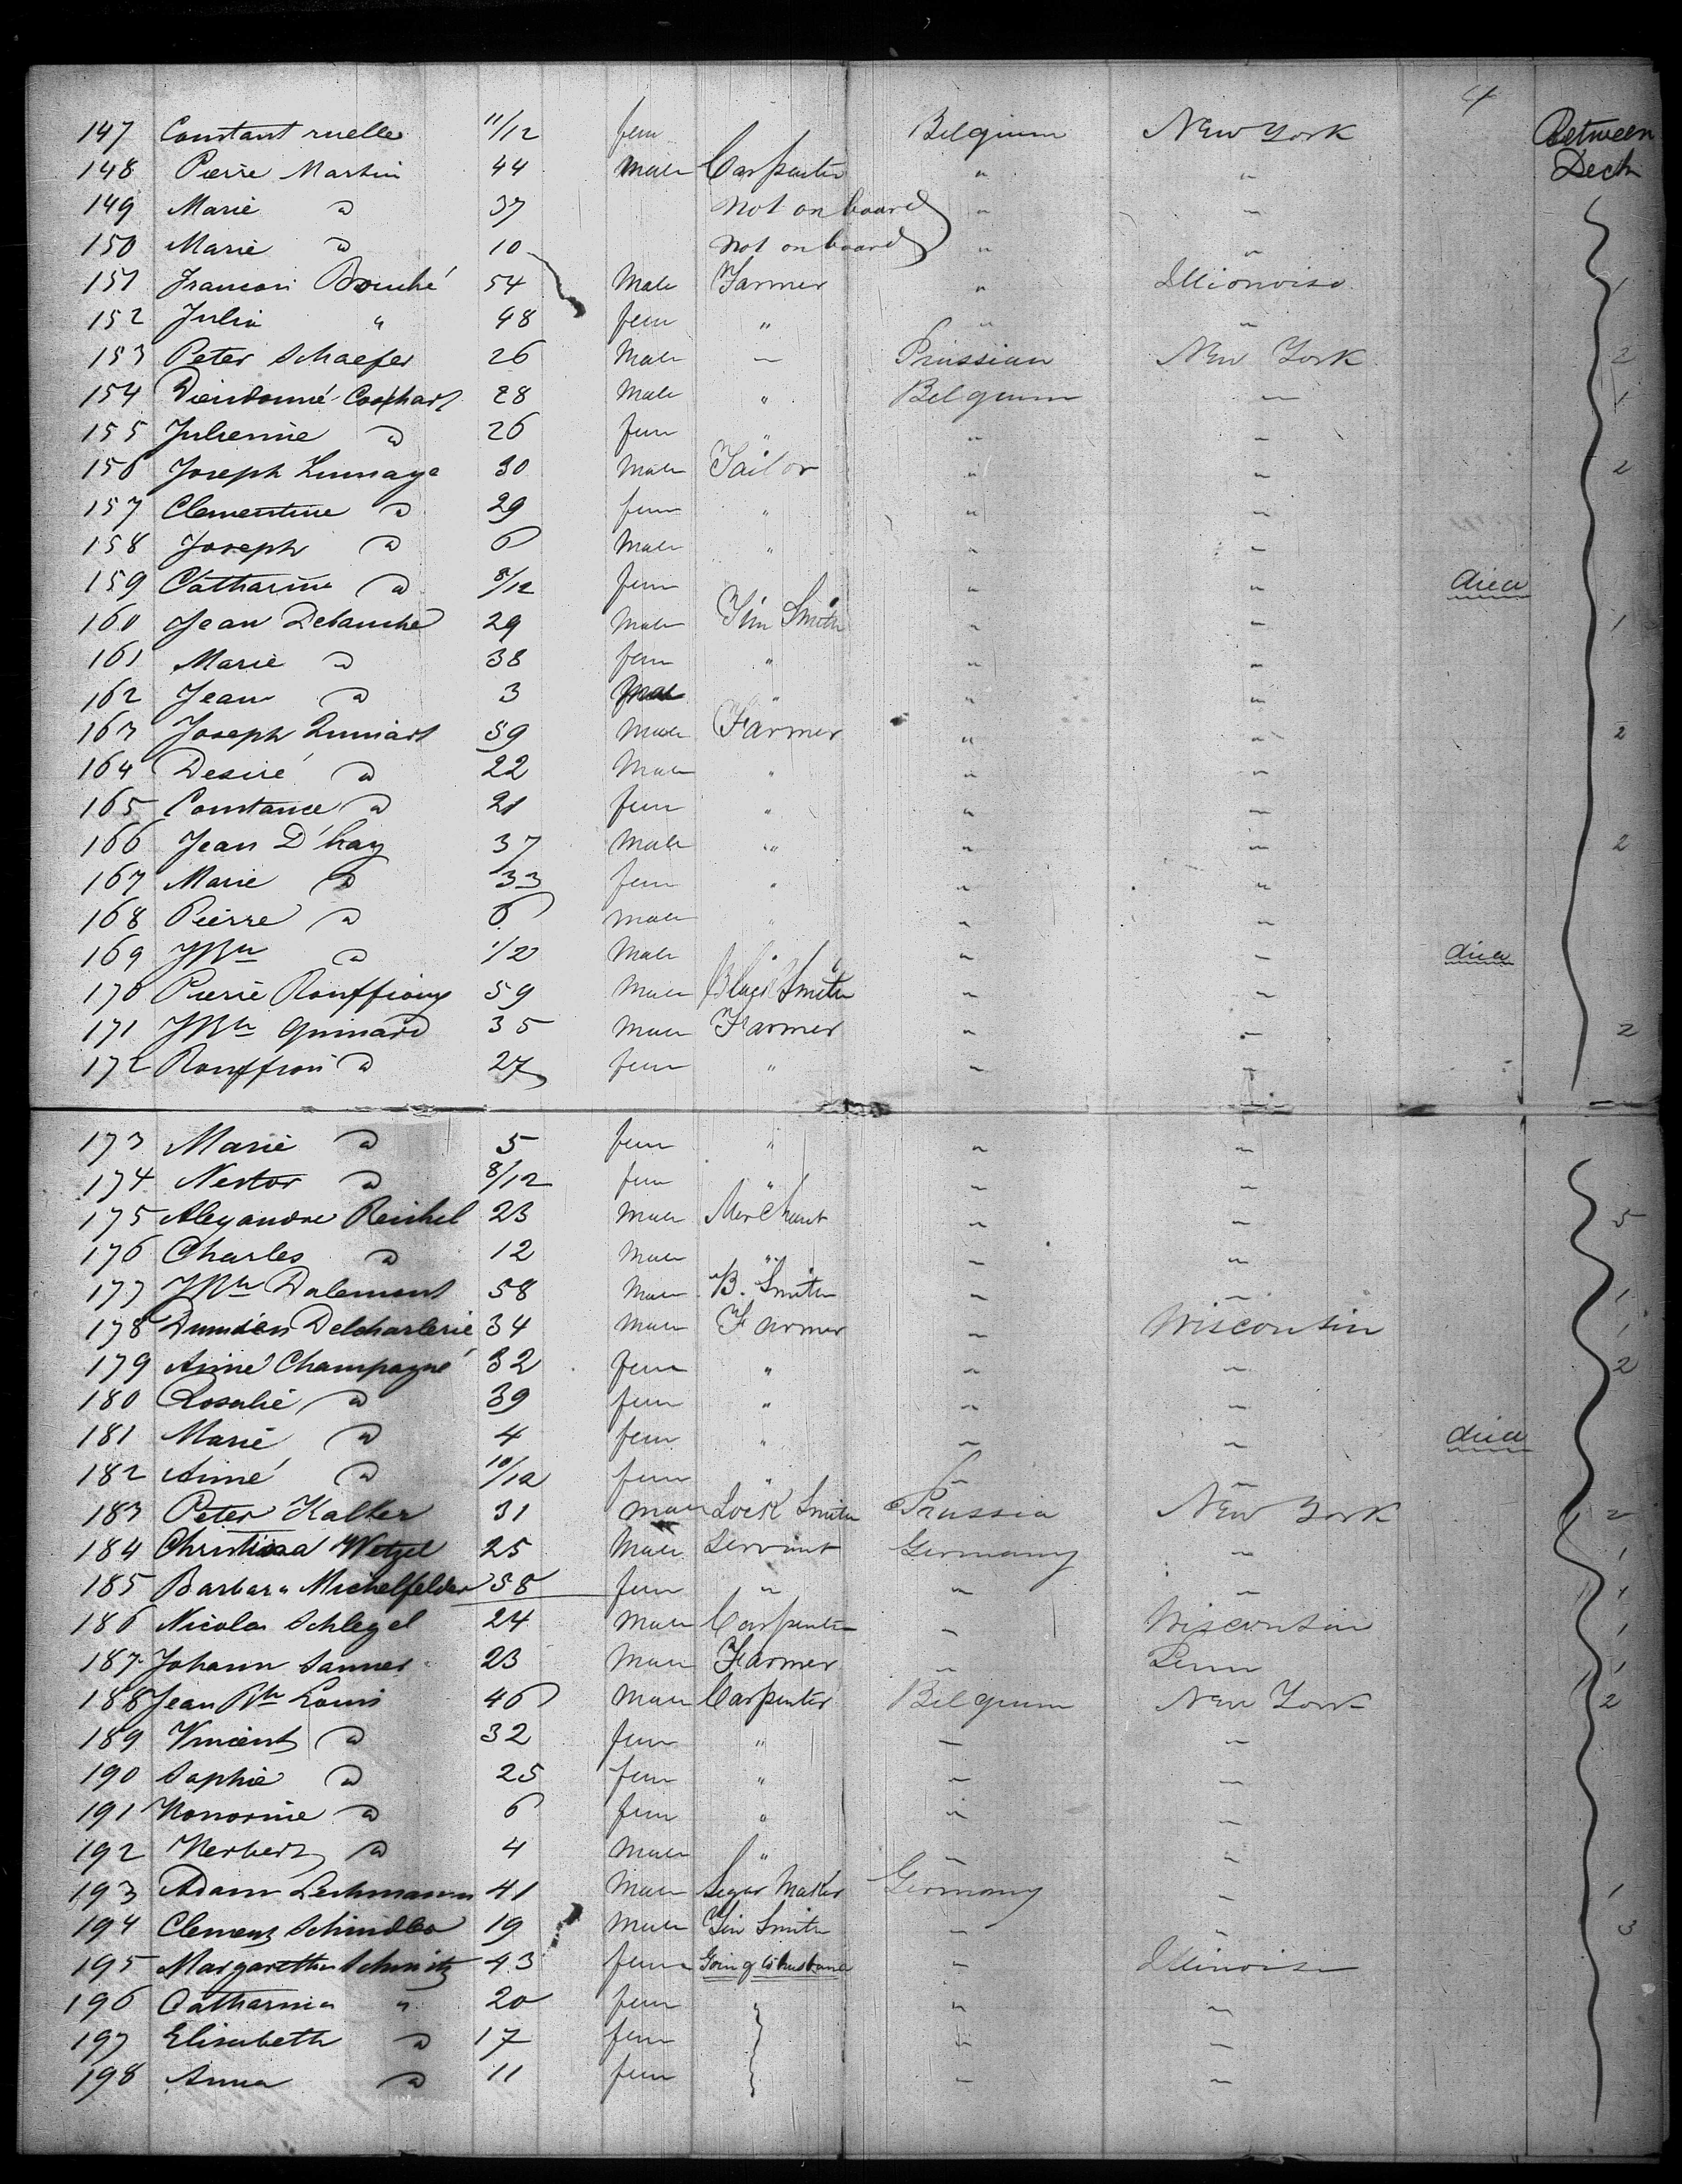 4
147 Constant ruelle 11/12 fem Belgium New York Between
148 Pierre Martin 44 Male Carpenter " " Deck
149 Marie do 37 not on board " "
150 Marie do 10 not on board " "
151 Francois Bouché 54 Male Farmer " Illionoise 1
152 Julia " 48 fem " " "
153 Peter Schaefer 26 Male — Prussian New York 2
154 Dieudonné Cochart 28 Male " Belgium — 1
155 Julienne do 26 fem " " "
156 Joseph Lumaye 30 Male Tailor " " 2
157 Clementine do 29 fem " " "
158 Joseph do 6 Male " " "
159 Catharine do 8/12 fem " " died
160 Jean Debauche 29 Male Tin Smith " " 1
161 Marie do 38 fem " " "
162 Jean do 3 " " "
163 Joseph Quniart 59 Male Farmer " " 2
164 Desiré do 22 Male " " "
165 Constance do 21 fem " " "
166 Jean D'hay 37 Male " " " 2
167 Marie do 33 fem " " "
168 Pierre do 6 Male " " "
169 JBte do 1/2 Male " " died
170 Pierre Rouffiony 59 Male Black Smith " "
171 JBte Guinard 35 Male Farmer " " 2
172 Rouffion do 27 fem " " "
173 Marie do 5 fem " " "
174 Nestor do 8/12 fem " " "
175 Alexandre Reichel 23 Male Merchant " " 5
176 Charles do 12 Male " " "
177 JBte Dalemont 58 Male B. Smith " " 1
178 Delcharlerie 34 Male Farmer " Wisconsin 1
179 Aimé Champagne 32 fem " " " 2
180 Rosalie do 39 fem " " "
181 Marie do 4 fem " " " died
182 Aimé do 10/12 fem " " "
183 Peter Kalker 31 Male Lock Smith Prussia New York 2
184 Wetzel 25 Male Servant Germany " 1
185 Barbara Michelfelder 58 fem " " " 1
186 Nicolas Schlegel 24 Male Carpenter " Wisconsin 1
187 Johann Sanner 23 Male Farmer " Penn 1
188 Jean Bte Louis 46 Male Carpenter Belgium New York 2
189 Vincent do 32 fem " — "
190 Sophie do 25 fem " " "
191 Honorine do 6 fem " " "
192 Herbert do 4 Male " " "
193 Adam Lechmann 41 Male Segar Maker Germany " 1
194 Clemens Schindler 19 Male Tin Smith " " 3
195 Margaretha Schmitz 43 fem Going to husband " Illinoise
196 Catharina " 20 fem " "
197 Elisabeth do 17 fem " "
198 Anna do 11 fem " "